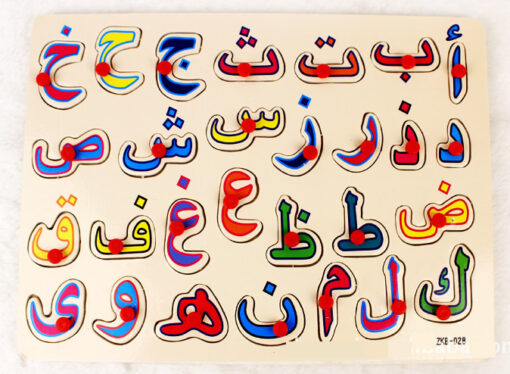 أ ب ت ث ج ح خ
د ذ ر ز س ش ص
ض ط ظ ع غ ف ق
ك ل م ن ه و ى
ZKB-028